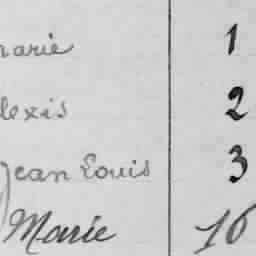 marie 1
lexis 2
Jean Louis 3
Marie 16